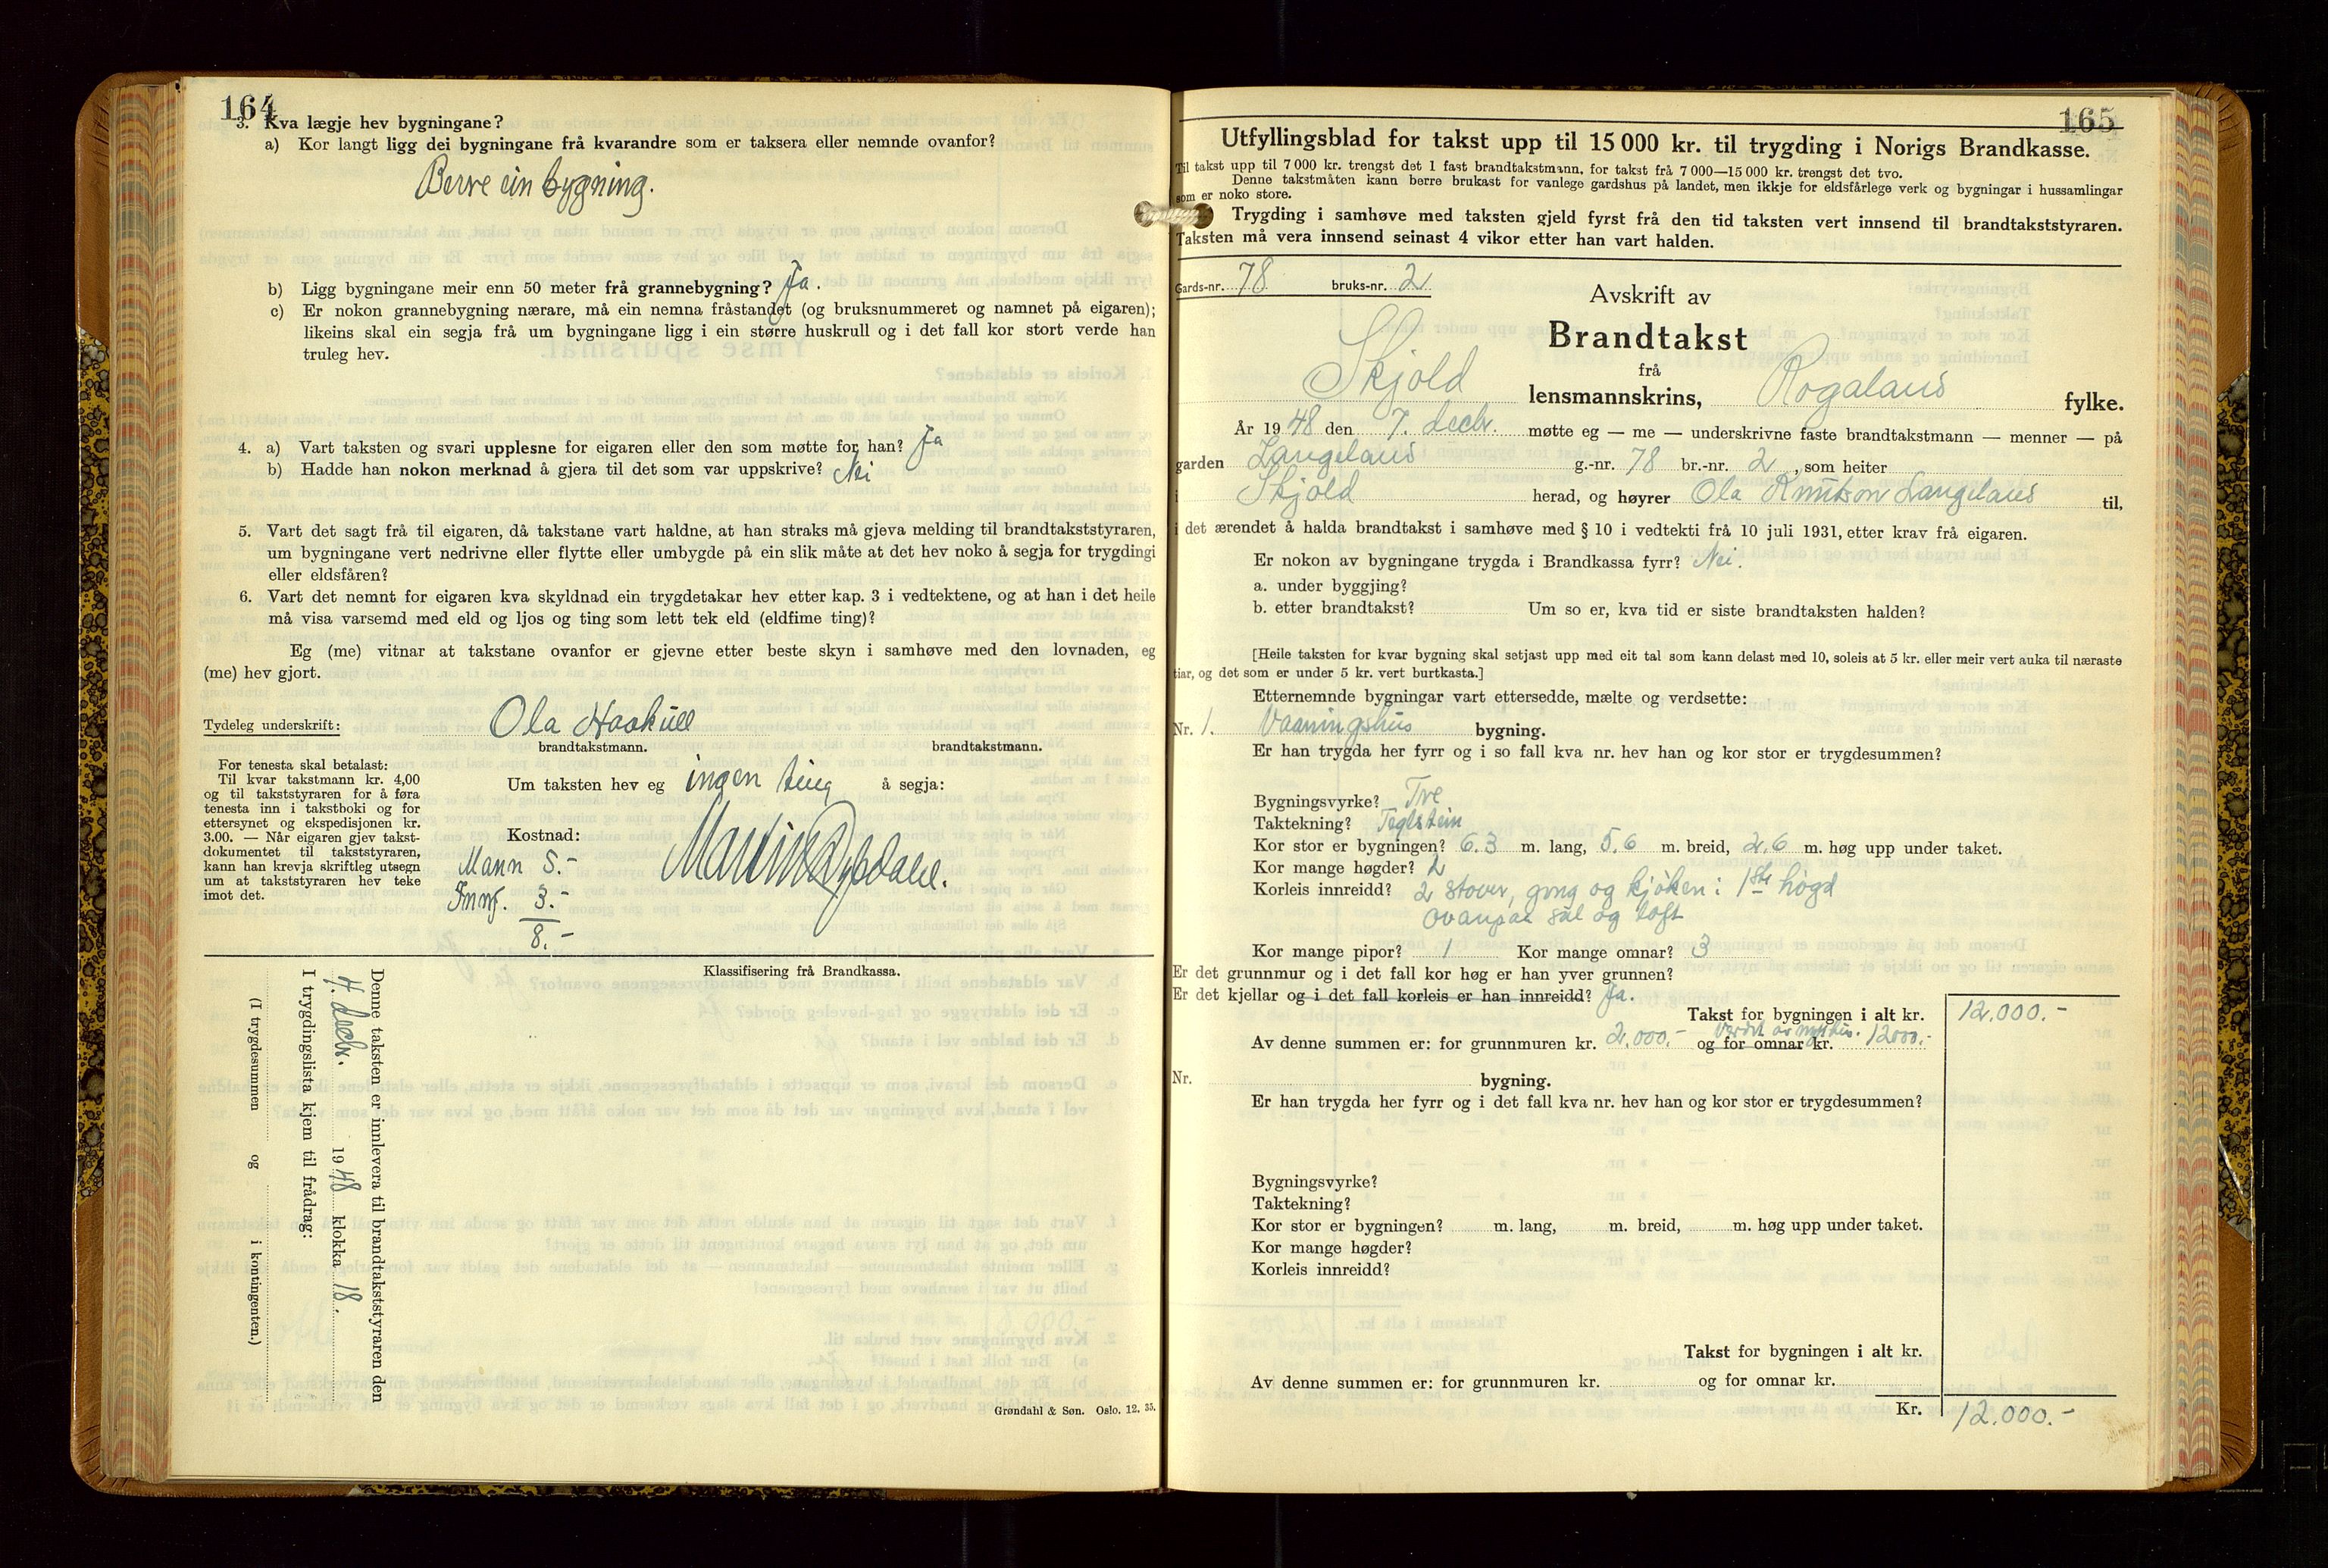 164
3. Kva lægje hev bygningane?
a) Kor langt ligg dei bygningane frå kvarandre som er taksera eller nemnde ovanfor?
Berre ein bygning.
b) Ligg bygningane meir enn 50 meter frå grannebygning? Ja.
c) Er nokon grannebygning nærare, må ein nemna fråstandet (og bruksnummeret og namnet på eigaren);
likeins skal ein segja frå um bygningane ligg i ein større huskrull og i det fall kor stort verde han
truleg hev.
4. a) Vart taksten og svari upplesne for eigaren eller den som møtte for han? Ja
b) Hadde han nokon merknad å gjera til det som var uppskrive? Nei
5. Vart det sagt frå til eigaren, då takstane vart haldne, at han straks må gjeva melding til brandtakststyraren,
um bygningane vert nedrivne eller flytte eller umbygde på ein slik måte at det hev noko å segja for trygdingi
eller eldsfåren?
6. Vart det nemnt for eigaren kva skyldnad ein trygdetakar hev etter kap. 3 i vedtektene, og at han i det heile
må visa varsemd med eld og ljos og ting som lett tek eld (eldfime ting)?
Eg (me) vitnar at takstane ovanfor er gjevne etter beste skyn i samhøve med den lovnaden, eg
(me) hev gjort.
Tydeleg underskrift: Ola Haakull
brandtakstmann. brandtakstmann.
For tenesta skal betalast:
Til kvar takstmann kr. 4,00
og til takststyraren for å føra
tenesta inn i takstboki og for
ettersynet og ekspedisjonen kr.
3.00. — Når eigaren gjev takst-
dokumentet til takststyraren,
kann han krevja skriftleg utsegn
um at takststyraren hev teke
imot det.
Um taksten hev eg ingen ting å segja:
Kostnad:
Mann 5.-
3.-
8.-
Klassifisering frå Brandkassa.
Denne taksten er innlevera til brandtakststyraren den
7. decbr. 1948 klokka 18.
I trygdingslista kjem til frådrag:
(I trygdesummen og i kontingenten.)
Grøndahl & Søn. Oslo. 12. 35.
165
Utfyllingsblad for takst upp til 15 000 kr. til trygding i Norigs Brandkasse.
Til takst upp til 7 000 kr. trengst det 1 fast brandtakstmann, for takst frå 7 000—15 000 kr. trengst det tvo.
Denne takstmåten kann berre brukast for vanlege gardshus på landet, men ikkje for eldsfårlege verk og bygningar i hussamlingar
som er noko store.
Trygding i samhøve med taksten gjeld fyrst frå den tid taksten vert innsend til brandtakststyraren.
Taksten må vera innsend seinast 4 vikor etter han vart halden.
Gards-nr. 78 bruks-nr. 2
Avskrift av
Brandtakst
frå
Skjold lensmannskrins, Rogaland fylke.
År 1948 den 7. decbr. møtte eg — me — underskrivne faste brandtakstmann — menner — på
garden Langeland g.-nr. 78 br.-nr. 2, som heiter
i Skjold herad, og høyrer Ola Knutson Langeland til,
i det ærendet å halda brandtakst i samhøve med § 10 i vedtekti frå 10 juli 1931, etter krav frå eigaren.
Er nokon av bygningane trygda i Brandkassa fyrr? Nei.
a. under byggjing?
b. etter brandtakst? Um so er, kva tid er siste brandtaksten halden?
[Heile taksten for kvar bygning skal setjast upp med eit tal som kann delast med 10, soleis at 5 kr. eller meir vert auka til næraste
tiar, og det som er under 5 kr. vert burtkasta.]
Etternemnde bygningar vart ettersedde, mælte og verdsette:
Nr. 1. Vaaningshus bygning.
Er han trygda her fyrr og i so fall kva nr. hev han og kor stor er trygdesummen?
Bygningsvyrke? Tre
Taktekning? Teglstein
Kor stor er bygningen? 6.3 m. lang, 5.6 m. breid, 2.6 m. høg upp under taket.
Kor mange høgder? 2
Korleis innreidd? 2 stover, gong og kjøken i 1ste høgd
ovanpaa sal og loft
Kor mange pipor? 1 Kor mange omnar? 3
Er det grunnmur og i det fall kor høg er han yver grunnen?
Er det kjellar og i det fall korleis er han innreidd? Ja.
Takst for bygningen i alt kr. 12.000.-
Av denne summen er: for grunnmuren kr. 2.000.- og for omnar kr. 12000.-
Nr. bygning.
Er han trygda her fyrr og i det fall kva nr. hev han og kor stor er trygdesummen?
Bygningsvyrke?
Taktekning?
Kor stor er bygningen? m. lang, m. breid, m. høg upp under taket.
Kor mange høgder?
Korleis innreidd?
Takst for bygningen i alt kr.
Av denne summen er: for grunnmuren kr. og for omnar kr.
Kr. 12.000.-